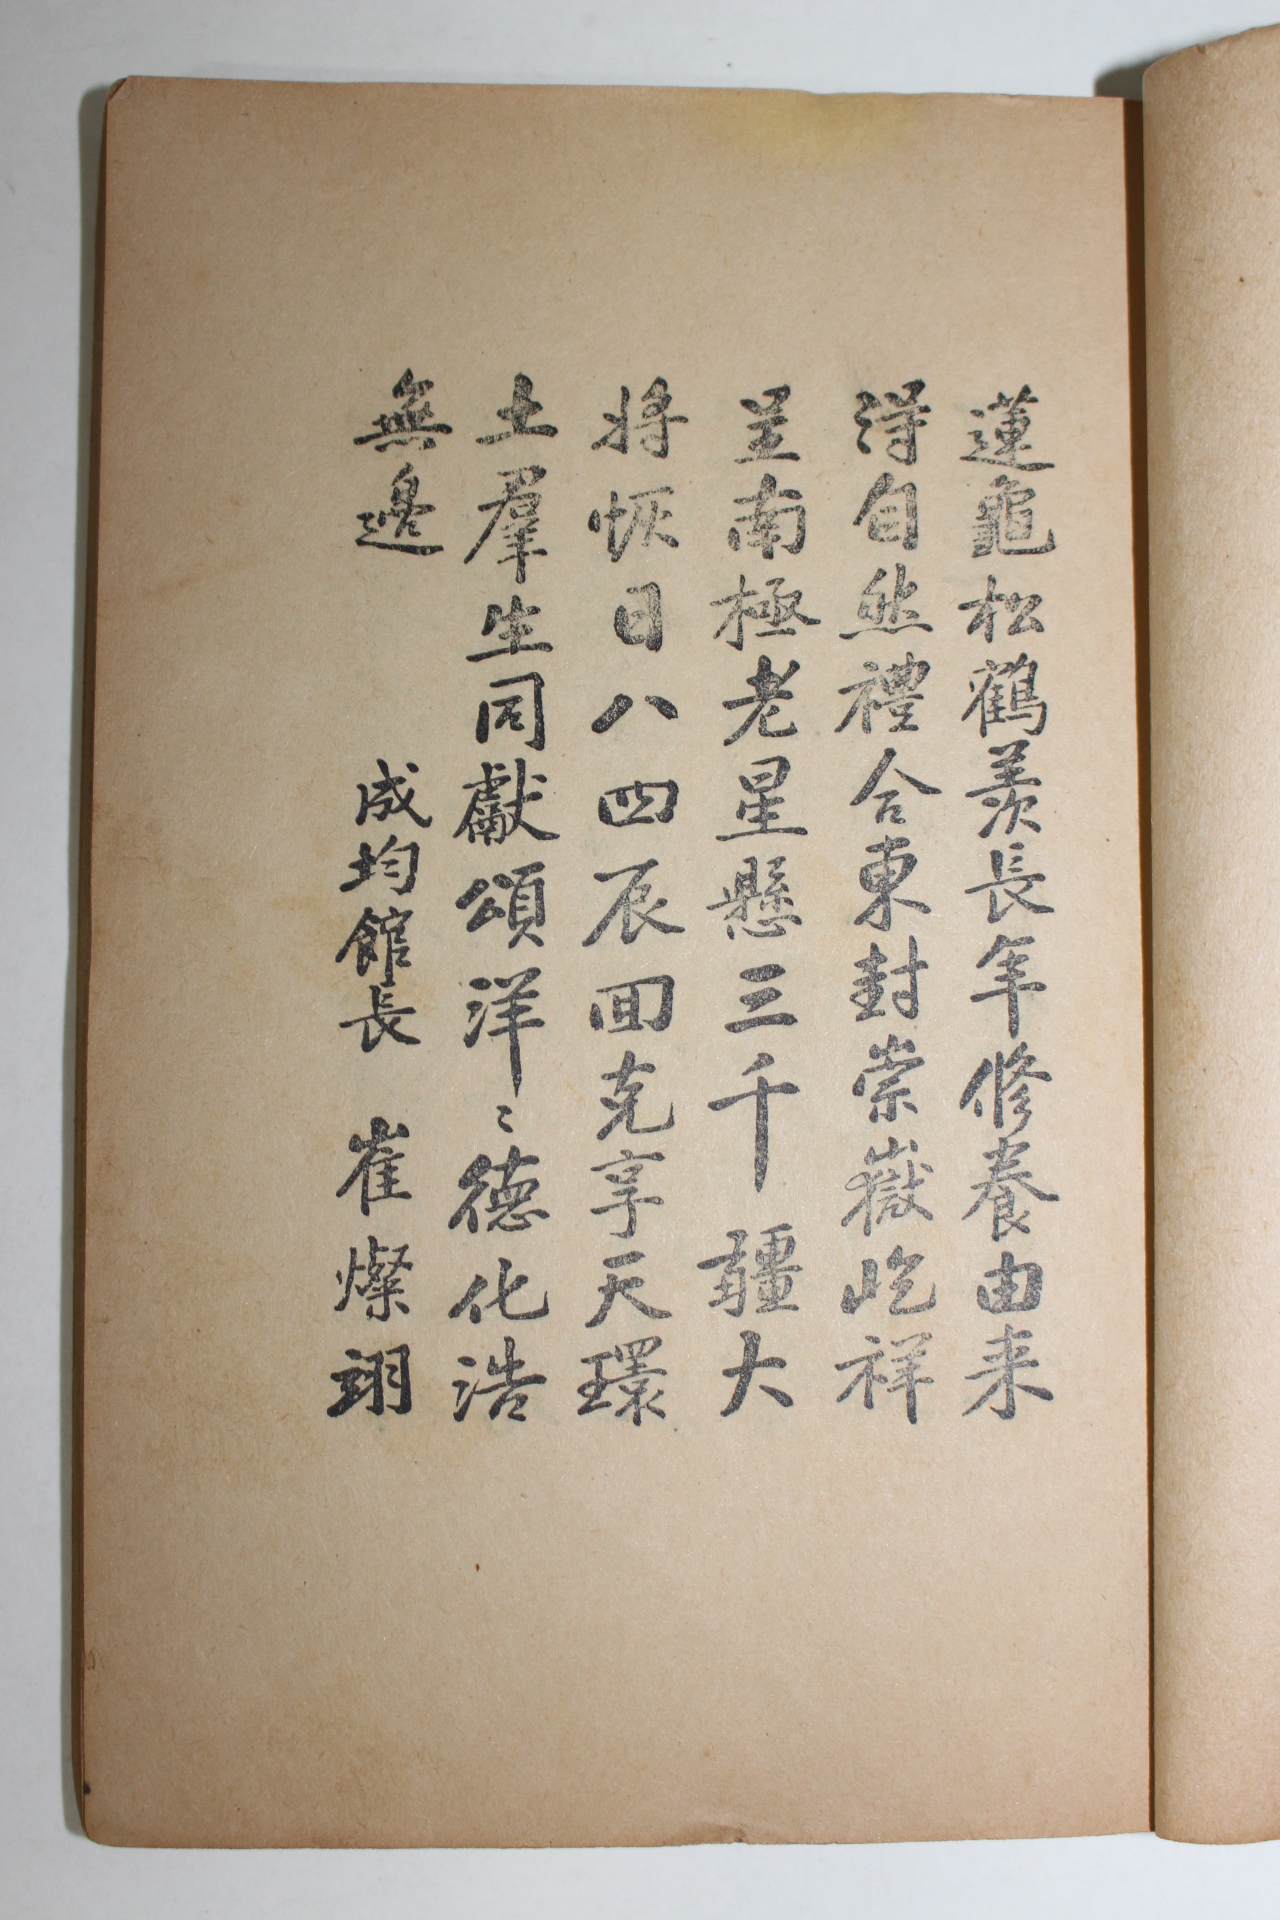 蓮龜松鶴羨長年修養由来
淂自然禮合東封崇嶽屹祥
呈南極老星懸三千疆大
将恢日八四辰回克享天環
土羣生同獻頌洋〻德化浩
無邊 成均館長 崔燦翊